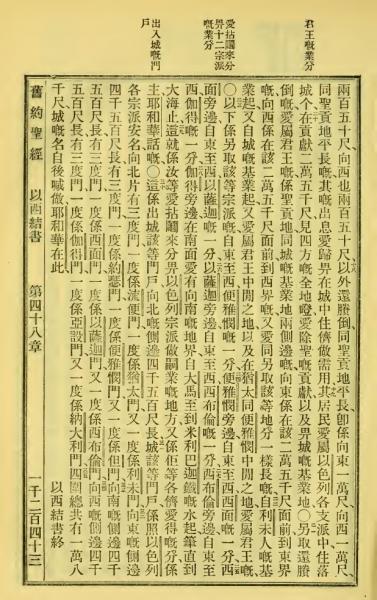 君王嘅業分
愛拈鬮來分
畀十二宗派
嘅業分
出入城嘅門
戶
兩百五十尺、向西也兩百五十尺、以外還賸倒同聖貢地平長卽係向東一萬尺向西一萬尺、
同聖貢地平長嘅其嘅出息愛歸畀在城中住儕做需用其居民愛屬以色列各支派中住落
城个在貢獻二萬五千尺見四方嘅全地噔愛除聖嘅貢獻以及畀城嘅基業地〇另取還賸
倒嘅愛屬君王嘅係聖貢地同城嘅基業地兩側邊嘅向東係在該二萬五千尺面前到東界
嘅向西係在該二萬五千尺面前到西界嘅又愛同另取該等地分一樣長嘅自利未人嘅基
業起又自城嘅基業起又愛屬君王中間之地以及在猶太同便雅憫中間之地愛屬君王嘅
〇以下係另取該等宗派嘅自東至西便雅憫嘅一分便雅憫旁邊自東至西西面嘅一分西
面旁邊自東至西以薩迦嘅一分以薩迦旁邊自東至西西布倫嘅一分西布倫旁邊自東至
西伽得嘅一分伽得旁邊在南面愛有向南嘅地界自大馬至到米利巴迦鐵嘅水起筆直到
大海止這就係汝等愛拈鬮來分畀以色列宗派做嗣業嘅地方又係佢等各儕愛得嘅業分
主耶和華話嘅〇這係出城該等門戶向北嘅側邊四千五百尺長城該等門戶係照以色列
各宗派安名向北片有三度門一度係流便門一度係猶大門又一度係利未門向東嘅側邊
四千五百尺長有三度門一度係約瑟門一度係便雅憫門又一度係但門向南嘅側邊四千
五百尺長有三度門一度係西面門一度係以薩迦門又一度係西布倫門向西嘅側邊四千
五百尺長有三度門一度係伽得門一度係亞設門又一度係納大利門四圍總共有一萬八
千尺城嘅名自後喊做耶和華在此
以西結書終
舊約聖經 以西結書 第四十八章 一千二百四十三